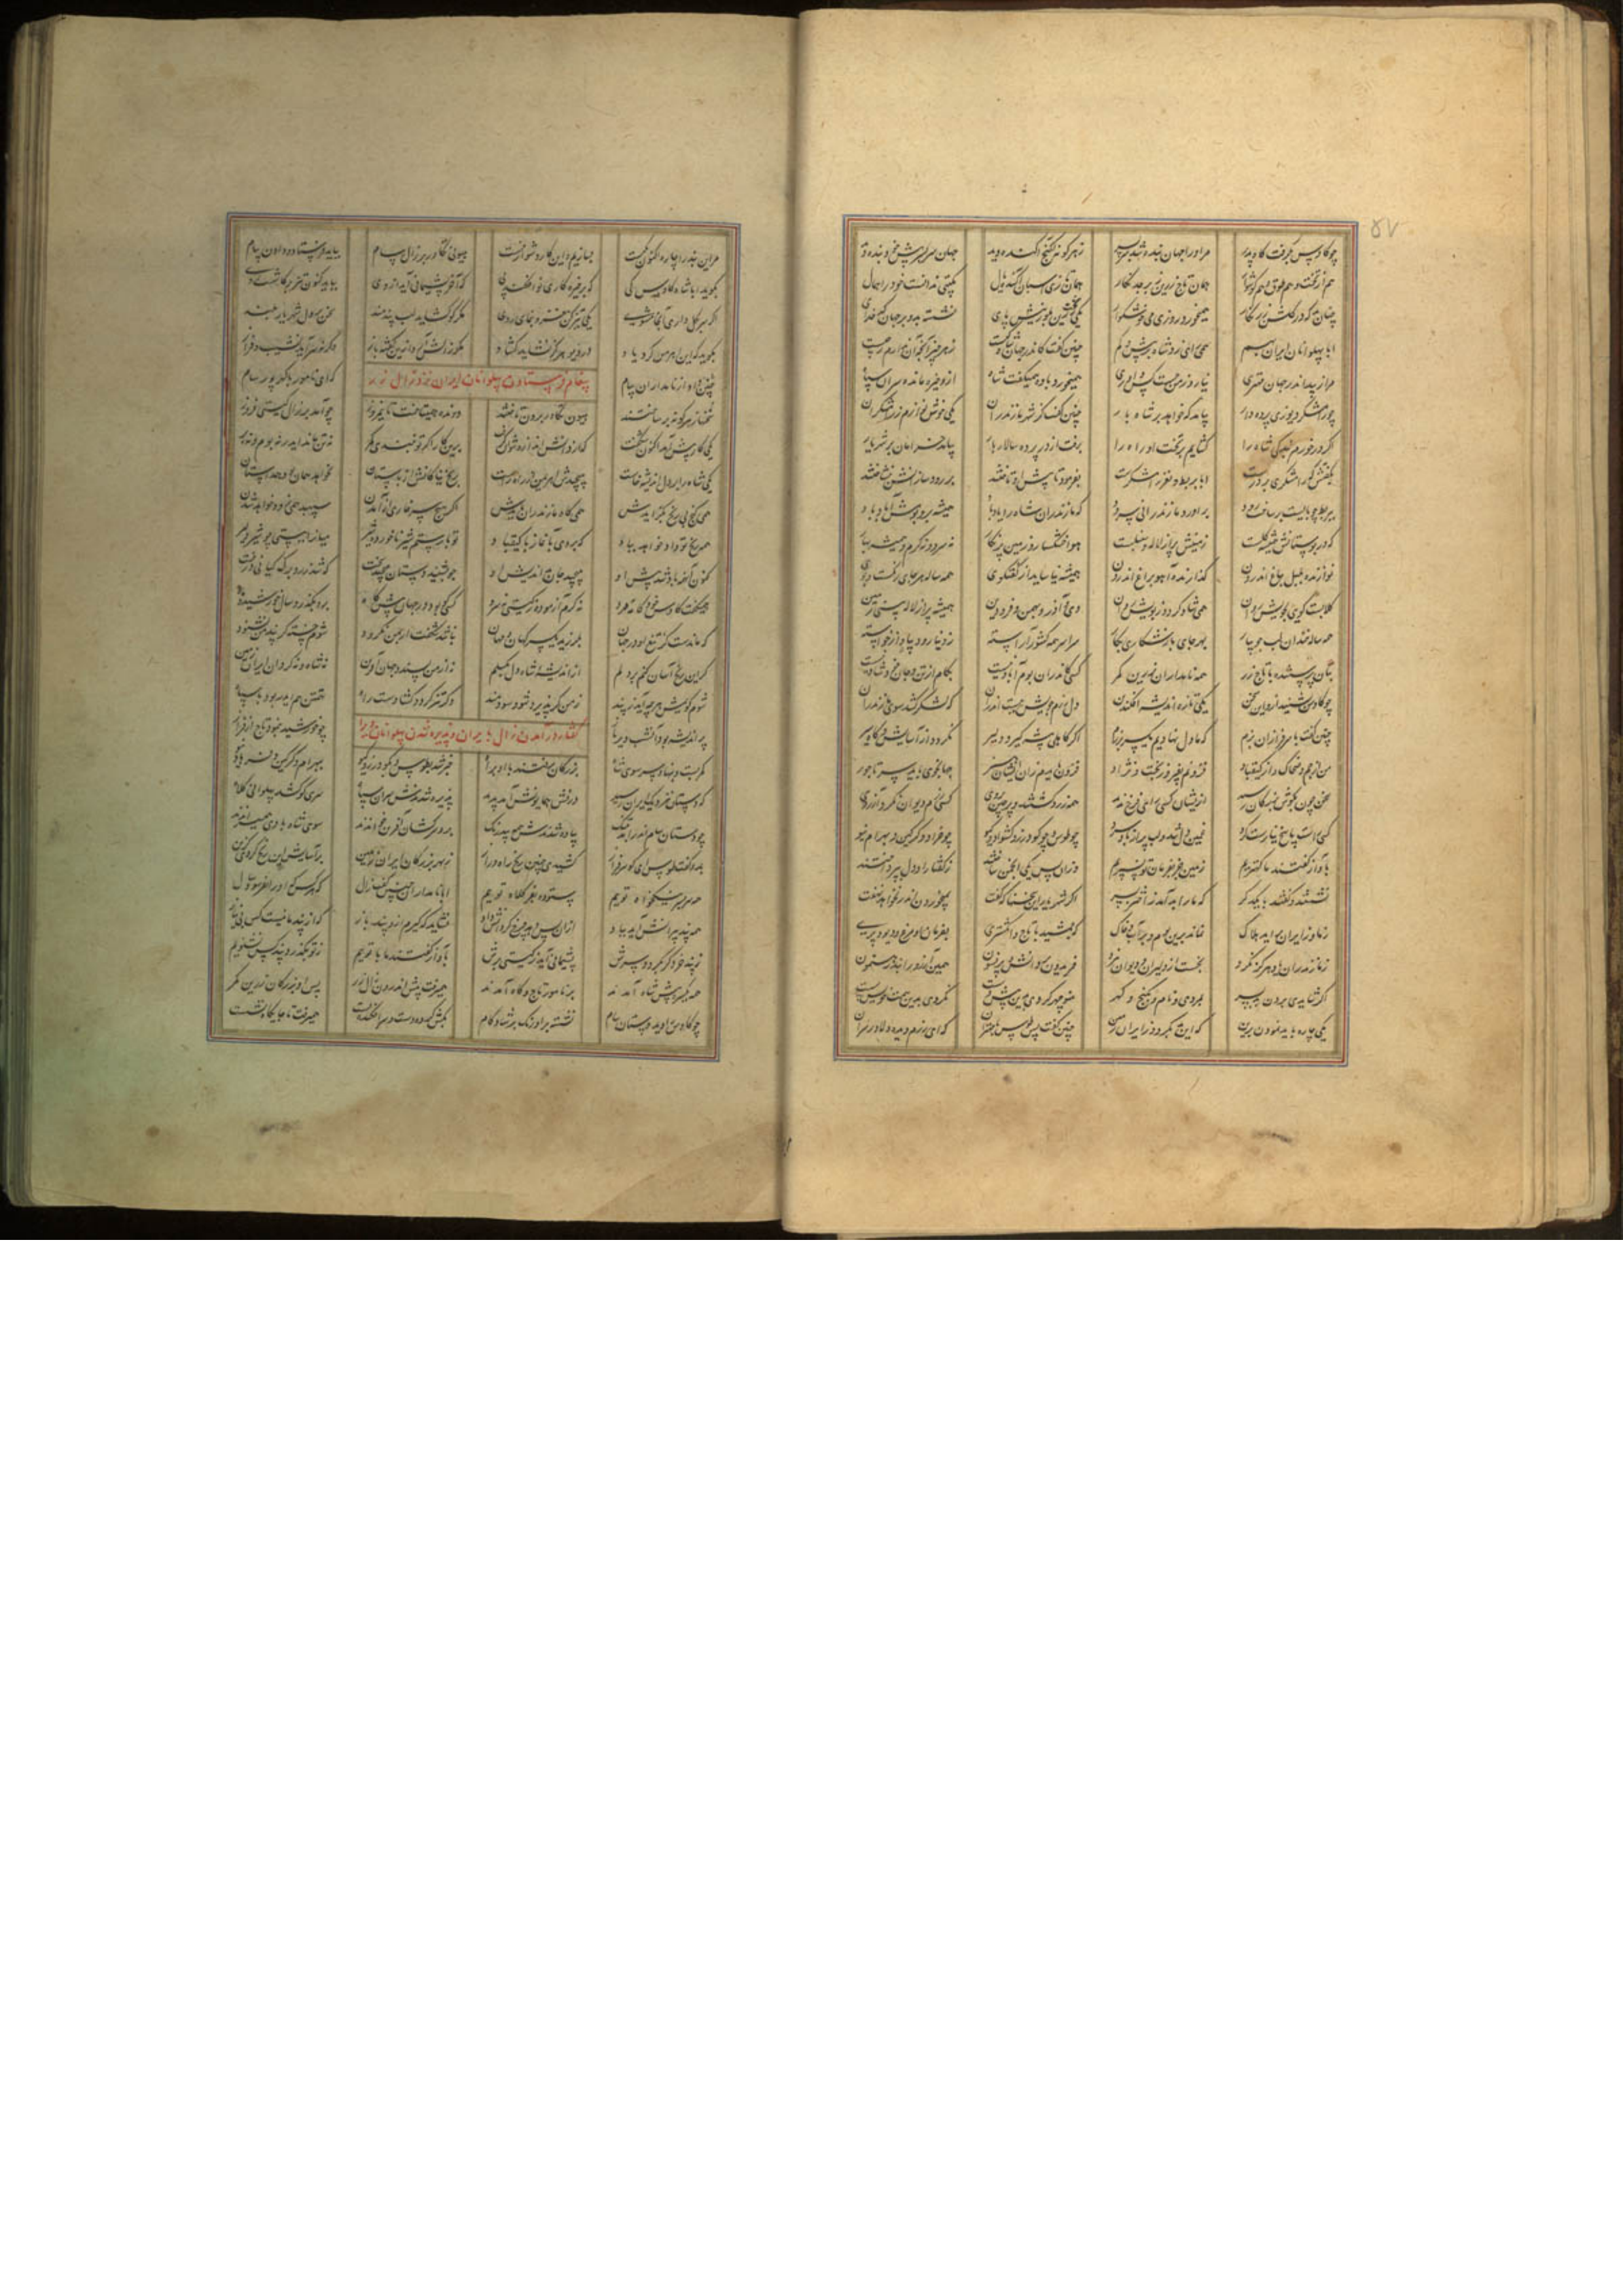 ۵۷
چو کاوس بگرفت گاه پدر مر او را جهان بنده شد سربسر ز هر گونه گنج آکنده دید جهان سربسر پیش خود بنده دید
هم از تخت و هم طوق و هم گوشوار همان تاج زرین زبرجد نگار همان تازی اسپان آکنده یال بگیتی ندانست خود را همال
چنان بد که در گلشن زرنگار همی خورد روزی می خوشگوار یکی تخت زرین بلورینش پای نشسته برو بر جهان کدخدای
ابا پهلوانان ایران بهم همی رای زد شاه بر بیش و کم چنین گفت کاندر جهان شاه کیست ز هر چیز آنجه آن دارم ز چیست
مرا زیبد اندر جهان مهتری نیارد ز من جست کس داوری همی خورد باده همی گفت شاه ازو خیره مانده سران سپاه
چو رامشگر دیو زی پرده دار بیامد که خواهد بر شاه بار چنین گفت کز شهر مازندران یکی خوش نوازم ز رامشگران
اگر در خورم بندگی شاه را گشایم بر تخت او راه را برفت از در پرده سالار بار بیامد خرامان بر شهریار
بگفتش که رامشگری بر درست ابا بربط و نغز رامشگرست بفرمود تا پیش او تاختند بر رود سازانش بنشاختند
ببربط چو بایست برساخت رود برآورد مازندرانی سرود که مازندران شاه را یاد باد همیشه بر و بومش آباد باد
که در بوستانش همیشه گلست زمینش پر از لاله و سنبلست هوا خوشگوار و زمین پرنگار نه سرد و نه گرم و همیشه بهار
نوازنده بلبل بباغ اندرون گرازنده آهو براغ اندرون همیشه نیاساید از گفتگوی همه ساله هر جای رنگست و بوی
گلابست گویی بجویش روان همی شاد گردد ز بویش روان دی و آذر و بهمن و فرودین همیشه پر از لاله بینی زمین
همه ساله خندان لب جویبار بهر جای باز شکاری بکار سراسر همه کشور آراسته ز دینار و دیبا و از خواسته
بتان پرستنده با تاج زر همه نامداران زرین کمر کسی کاندر آن بوم آباد نیست بکام از تن و جان خود شاد نیست
چو کاوس بشنید ازو این سخن یکی تازه اندیشه افکند بن دل رزم جویش ببست اندران که لشکر کشد سوی مازندران
چنین گفت با سرفرازان بزم که ما دل نهادیم یکسر برزم اگر کاهلی پیشه گیرد دلیر نگردد از آسایش و گاه سیر
من از جم و ضحاک و از کیقباد فزونم بفر و ز بخت و نژاد فزون باید مرزان ایشان هنر جهانجوی باید سر تاجور
سخن چون بگوش بزرگان رسید ازیشان کسی رای فرخ ندید همه زرد گشتند و پرچین بروی کسی رزم دیوان نکرد آرزوی
کسی راست پاسخ نیارست کرد غمین دل شد و لب پر از باد سرد چو طوس و چو گودرز کشواد و گیو چو خراد و گرگین و بهرام نیو
بآواز گفتند ما کهتریم زمین جز بفرمان تو نسپریم وزان پس یکی انجمن ساختند ز گفتار او دل بپرداختند
نشستند و گفتند با یکدگر که ما را بد آمد ز اختر بسر اگر شهریار این سخنها که گفت بمی خوردن اندر نخواهد نهفت
ز ما و ز ایران برآید هلاک نماند برین بوم و بر آب و خاک که جمشید با تاج و انگشتری بفرمان او مرغ و دیو و پری
ز مازندران یاد هرگز نکرد نجست از دلیران دیوان نبرد فریدون پر دانش و پر فسون همین آرزو را نبد رهنمون
اگر شایدی بردن این بد بسر بمردی و نام و بگنج و گهر منوچهر کردی بدین پیش دست نکردی بدین همت خویش پست
یکی چاره باید نمودن برین که این بد بگردد ز ایران زمین چنین گفت پس طوس با مهتران که ای رزم دیده دلاور سران
مر این بند را چاره اکنون یکیست بسازیم و این کار دشوار نیست هیونی تکاور بر زال سام بباید فرستاد و دادن پیام
بگوید ابا شاه کاوس کی که بر خیره کاری نو افکند پی که آخر پشیمانی آید ازوی بباید کنون تیز بر کار روی
اگر سر بگل داری آنجا مشوی یکی تیز کن مغز و بنمای روی مگر کو گشاید لب پندمند سخن بر دل شهریار بلند
بگوید که این اهرمن کرد یاد در دیو هرگز نشاید گشاد مگر زالش آرد ازین گفته باز وگرنه سر آید نشیب و فراز
پیغام فرستادن پهلوانان ایران نزد زال زر
سخنها ز هر گونه برساختند هیون تکاور برون تاختند دونده همی تاخت تا نیمروز چو آمد بر زال گیتی فروز
چنین داد از نامداران پیام که ای نامور با گهر پور سام
یکی کار پیش آمد اکنون شگفت که از دانش اندازه نتوان گرفت برین کار اگر تو نبندی کمر نه تن ماند ایدر نه بوم و نه بر
یکی شاه را بر دل اندیشه خاست بپیچیدش اهرمن از راه راست برنج نیاکانش از باستان نخواهد همان بود همداستان
همی گنج بی رنج بگزایدش همی گاه مازندران بایدش اگر هیچ سر خاری از آمدن سپهبد همی زود خواهد شدن
همه رنج تو داد خواهد بباد که بردی بآغاز با کیقباد تو با رستم شیر ناخورده شیر میان را ببستی چو شیر دلیر
کنون آن همه باد شد پیش او بپیچید جان بد اندیش او چو بشنید دستان بپیچید سخت که شد زرد برگ کیانی درخت
همی گفت کاوس خودکامه مرد نه گرم آزموده ز گیتی نه سرد کسی کو بود در جهان پیش گاه برو بگذرد سال و خورشید و ماه
که ماندست کز تیغ او در جهان بلرزند یکسر کهان و مهان نباشد شگفت ار بمن نگرود شوم خسته گر پند من نشنود
گر این رنج آسان کنم بر دلم از اندیشه شاه دل بگسلم نه از من پسندد جهان آفرین نه شاه و نه گردان ایران زمین
شوم گویمش هر چه آید ز پند ز من گر پذیرد شود سودمند وگر تیز گردد گشادست راه تهمتن هم ایدر بود با سپاه
گفتار در آمدن زال بایران و پذیره شدن پهلوانان ویرا
پر اندیشه بود آن شب دیرباز چو خورشید بنمود تاج از فراز
کمر بست و بنهاد سر سوی شاه بزرگان برفتند با او براه خبر شد بطوس و بگودرز و گیو ببهرام و گرگین و خراد نیو
که دستان بنزدیک ایران رسید درفش همایونش آمد پدید پذیره شدندش سران سپاه سری کو کشد پهلوانی کلاه
چو دستان سام اندر آمد بتنگ پیاده شدندش همه بیدرنگ برو سرکشان آفرین خواندند سوی شاه با وی همی راندند
بدو گفت طوس ای گو سرفراز کشیدی چنین رنج راه دراز ز بهر بزرگان ایران زمین بر آسایش این رنج کردی گزین
همه سربسر نیکخواه توییم ستوده بفر کلاه توییم ابا نامداران چنین گفت زال که هر کس که او را نفرسود سال
همه پند پیرانش آید بیاد از آن پس دهد چرخ گردانش داد نشاید که گیریم ازو پند باز که از پند ما نیست کس بی نیاز
ز پند خرد گر بگردد سرش پشیمانی آید ز گیتی برش بآواز گفتند ما با توییم ز تو بگذرد پند کس نشنویم
همه یکسره پیش شاه آمدند بر نامور تاج و گاه آمدند همی رفت پیش اندرون زال زر پس او بزرگان زرین کمر
چو کاوس را دید دستان سام نشسته بر اورنگ بر شادکام بکش کرده دست و سر افکنده پست همی رفت تا جایگاه نشست